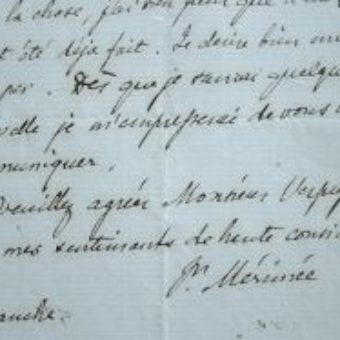 la chose, j'ai bien peur que
t été déjà fait. Je désire bien
per. Dès que je saurai quelque
velle je m'empresserai de vous
muniquer.
Veuillez agréer Monsieur
mes sentiments de haute consi
Pr Mérimée
anche.